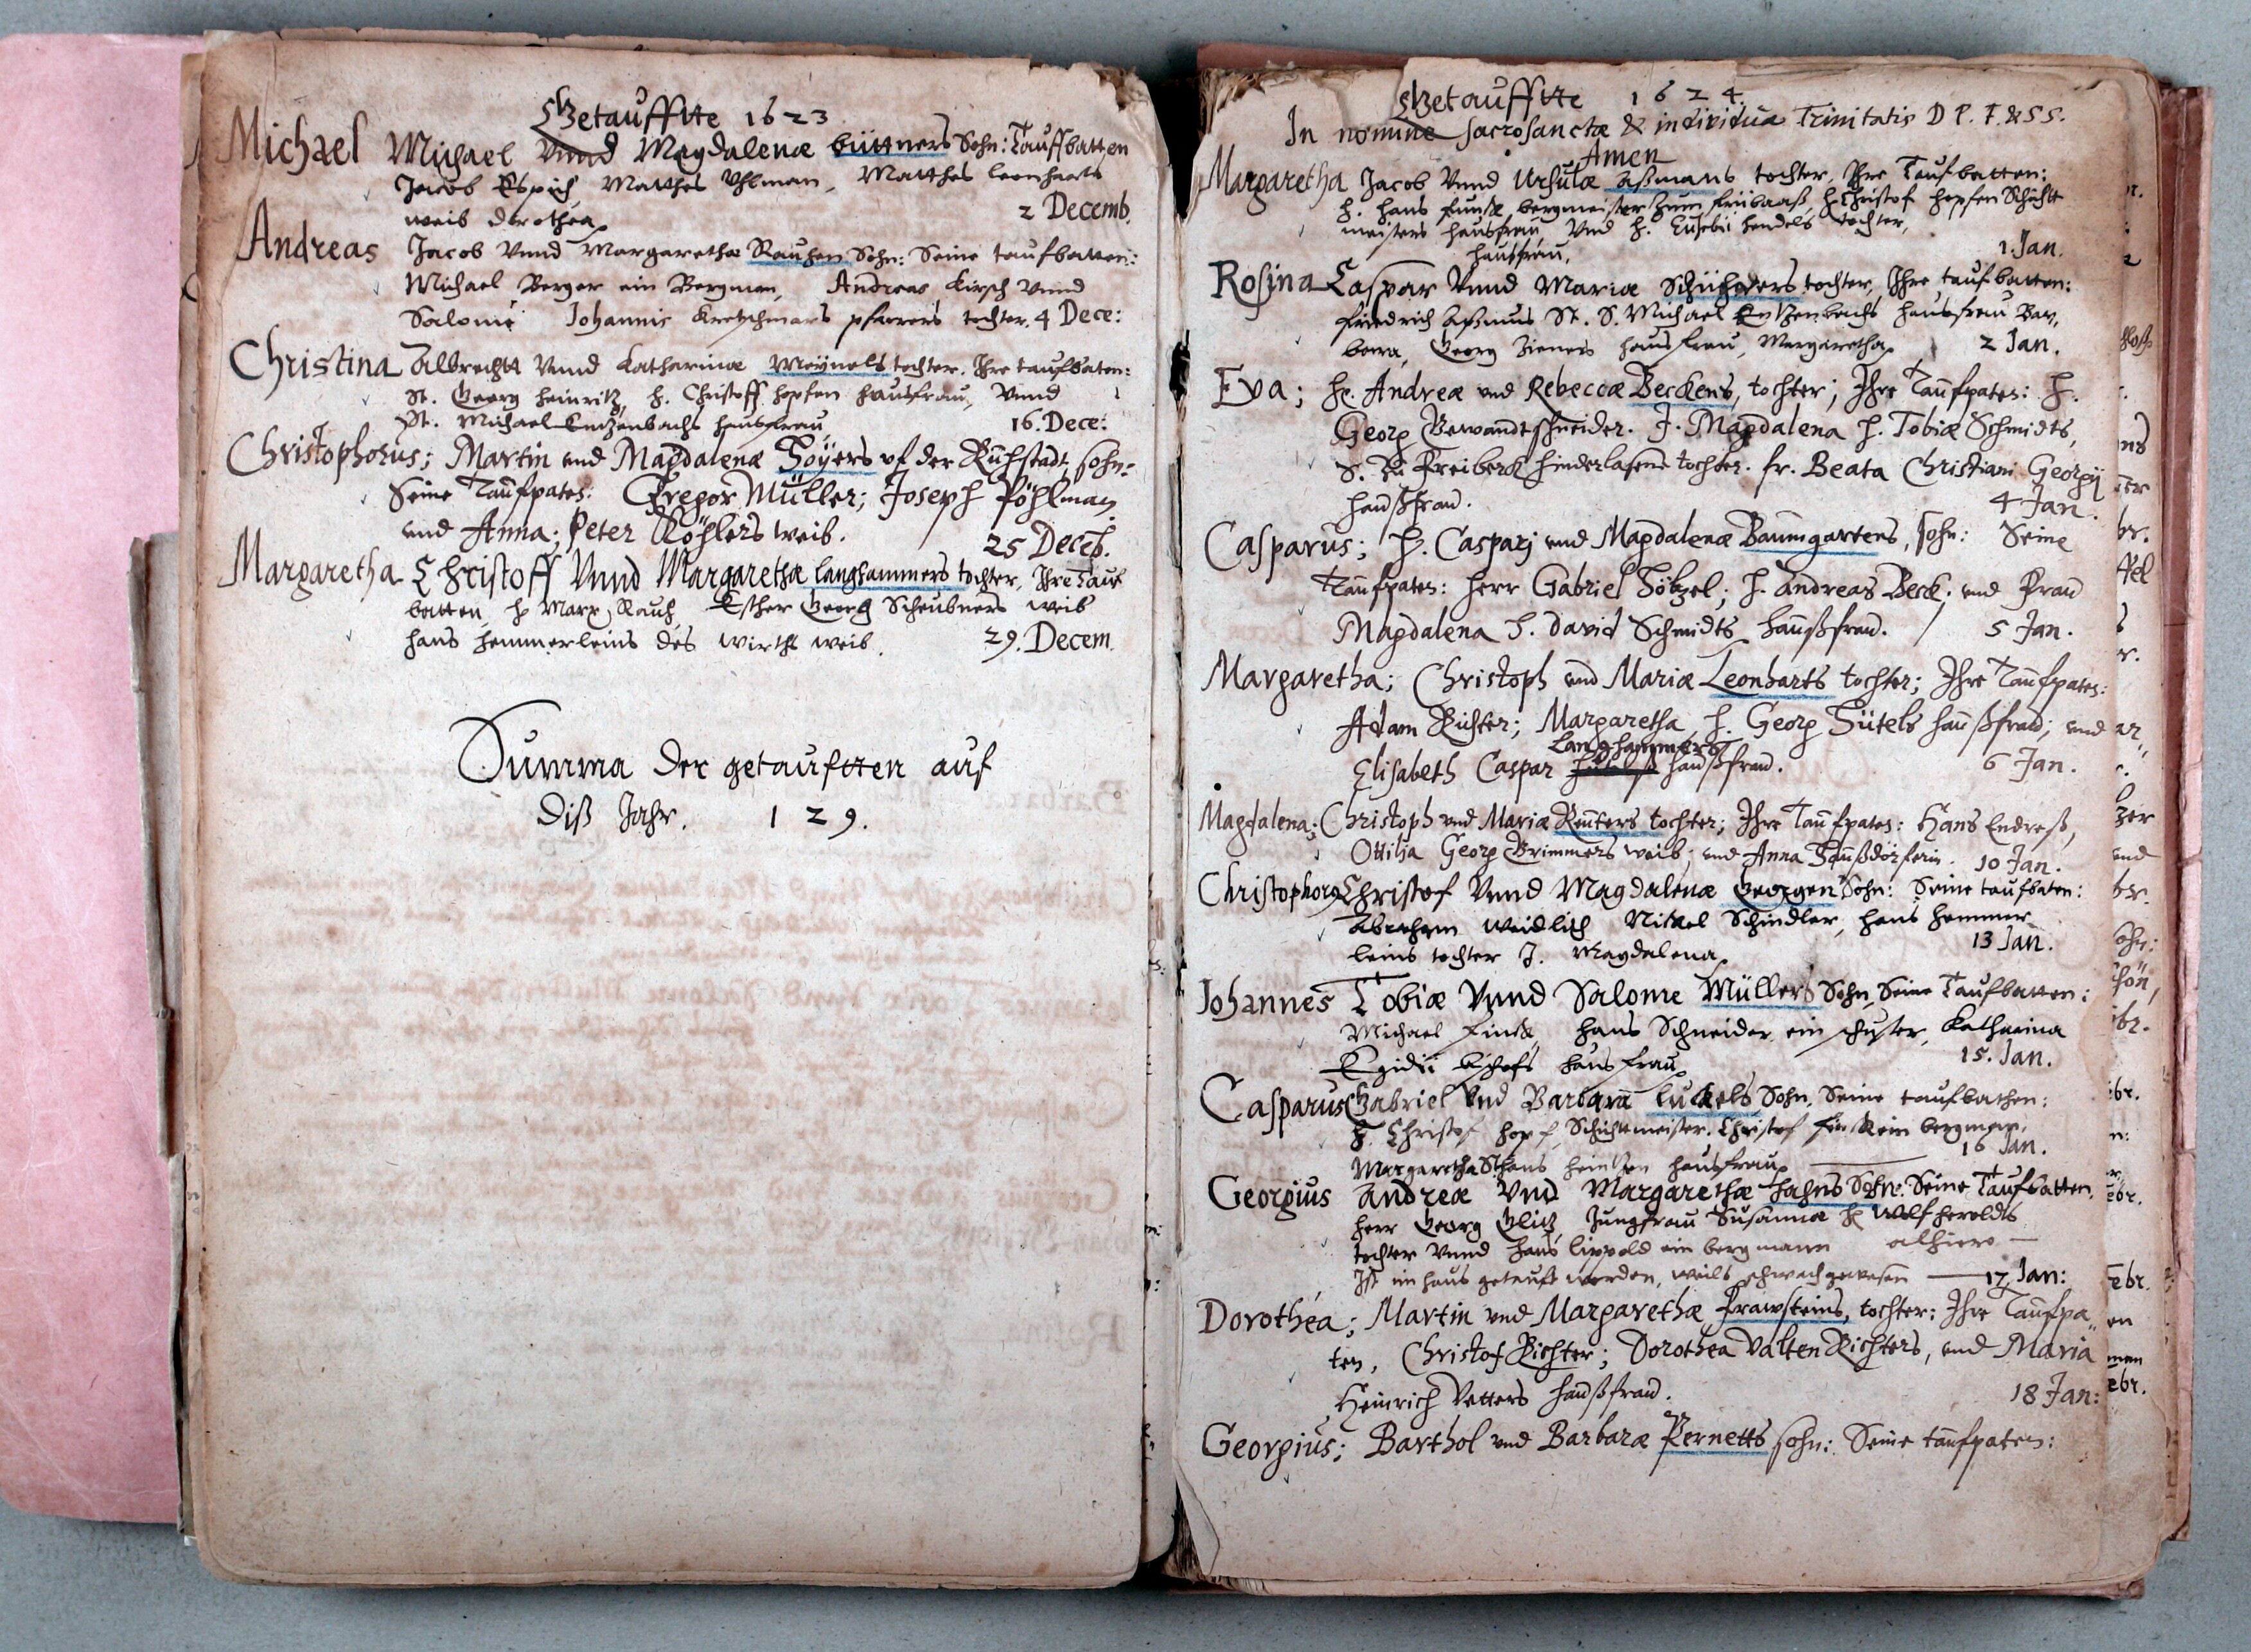 Getauffte 1623
Michael Michael Vnnd Magdalenæ büttners Sohn: Tauffbatten
Jacob Espich, Matthes Uhlman, Matthes leonharts
weib dorothea 2 Decemb.
Andreas Jacob Vnnd Margarethæ Rauhen Sohn: Seine taufbatten:
Michael Berger ein Bergman, Andreas Kirsch Vnnd
Salome Johannis Kretzschmars pfarrers tochter. 4 Dece:
Christina Albrecht Vnnd Katharinæ Meÿnels tochter. Ihre taufbaten:
St. Georg Heinritz, H. Christoff hopfen hausfrau, Vnnd
St. Michael Entzenbachs hausfrau 16. Dece:
Christophorus; Martin vnd Magdalenæ Hoÿers vf der
sohn:
Seine Taufpates: Gregor Müller; Joseph Pöhlman
vnd Anna; Peter Köhlers weib. 25 Deceb.
Margaretha Christoff Vnnd Margarethæ langhammers tochter, Ihre Tauf
batten, H Marx Rauh, Esther Georg Scheubners weib
hans hemmerleins des wirths weib. 29. Decem.
Summa der getauftten auf
diß Jahr. 129.
Getauffte 1624
In nomine sacrosanctæ & individuæ Trinitatis D P. F. & SS.
Amen
Margaretha Jacob Vnnd Ursulæ aßmans tochter, Ihre Taufbatten:
H. hans funck, bergmeister zum H Christof hopfen Schicht
meisters hausfrau, Vnd H. Eusebii hendels tochter,
hausfrau, 1. Jan.
Rosina Caspar Vnnd Mariæ tochter, Ihre taufbatten:
friedrich Aßmus St. S. Michael Entzenbachs hausfrau Bar,
bara, Georg Zieners hausfrau, Margaretha 2 Jan.
Eva; Hr. Andreæ vnd Rebeccæ Beckens, tochter; Ihre Taufpates: H.
Georg Gewandtschneider. J. Magdalena H. Tobiæ Schmidts,
S. Zu Freiberck hinderlasene tochter. fr. Beata Christiani Georgij
haußfrau. 4 Jan.
Casparus; H. Casparj vnd Magdalenæ Baumgartens, sohn: Seine
Taufpates: Herr Gabriel Hötzel; H. Andreas Beck; vnd Frau
Magdalena H. David Schmidts haußfrau. 5 Jan.
Margaretha; Christoph vnd Mariæ Leonharts tochter; Ihre Taufpates:
Adam Richter; Margaretha, H. Georg Hütels haußfrau; vnd
Langhammers
Elisabeth Caspar haußfrau. 6 Jan.
Magdalena; Christoph vnd Mariæ Reuters tochter; Ihre Taufpates: Hans Endreß,
Ottilia Georg Grimmers weib; vnd Anna Haußdörferin. 10 Jan.
Christophorg Christof Vnnd Magdalenæ Georgen Sohn: Seine taufbaten:
Abraham weidlich Nickel Schindler, hans hemmer
leins tochter J. Magdalena 13 Jan.
Johannes Tobiæ Vnnd Salome Müllers Sohn Seine Taufbatten:
Michael Finck, hans Schneider ein schuster, Katharina
Egidii bischofs hausfrau 15. Jan.
Casparus Gabriel Vnd Barbara luckels Sohn, Seine taufbathen:
H. Christof hopf, Schichtmeister, Christof finck ein bergman,
Margaretha St hans heintzen hausfrau 16 Jan.
Georgius Andreæ Vnd Margarethæ hahns Sohn: Seine Taufbatten.
Herr Georg Glitz, Jungfrau Susanna H Wolf heroldts
tochter Vnnd hans lippold ein bergmann alhiero
Ist im haus getauft worden, weils schwach gewesen 17 Jan:
Dorothea; Martin vnd Margarethæ Frawsteins, tochter: Ihre Taufpa„
ten, Christof Richter; Dorothea Valten Richters, vnd Maria
Heinrich Vetters haußfrau. 18 Jan:
Georgius; Barthol vnd Barbaræ Pernetts sohn: Seine taufpaten: